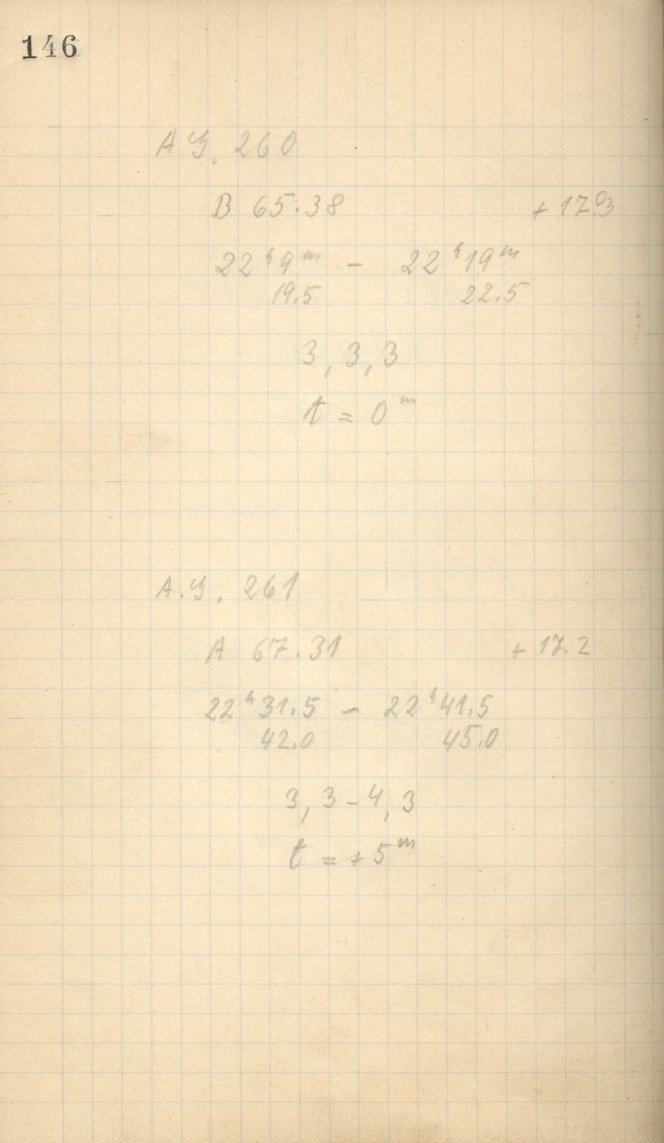 146
A G. 260
B 65.38 + 17.°3
22ʰ9ᵐ – 22ʰ19ᵐ
19.5 22.5
3, 3, 3
t = 0ᵐ
A.G. 261
A 67.31 + 17.2
22ʰ31.5 – 22ʰ41.5
42.0 45.0
3, 3–4, 3
t = +5ᵐ